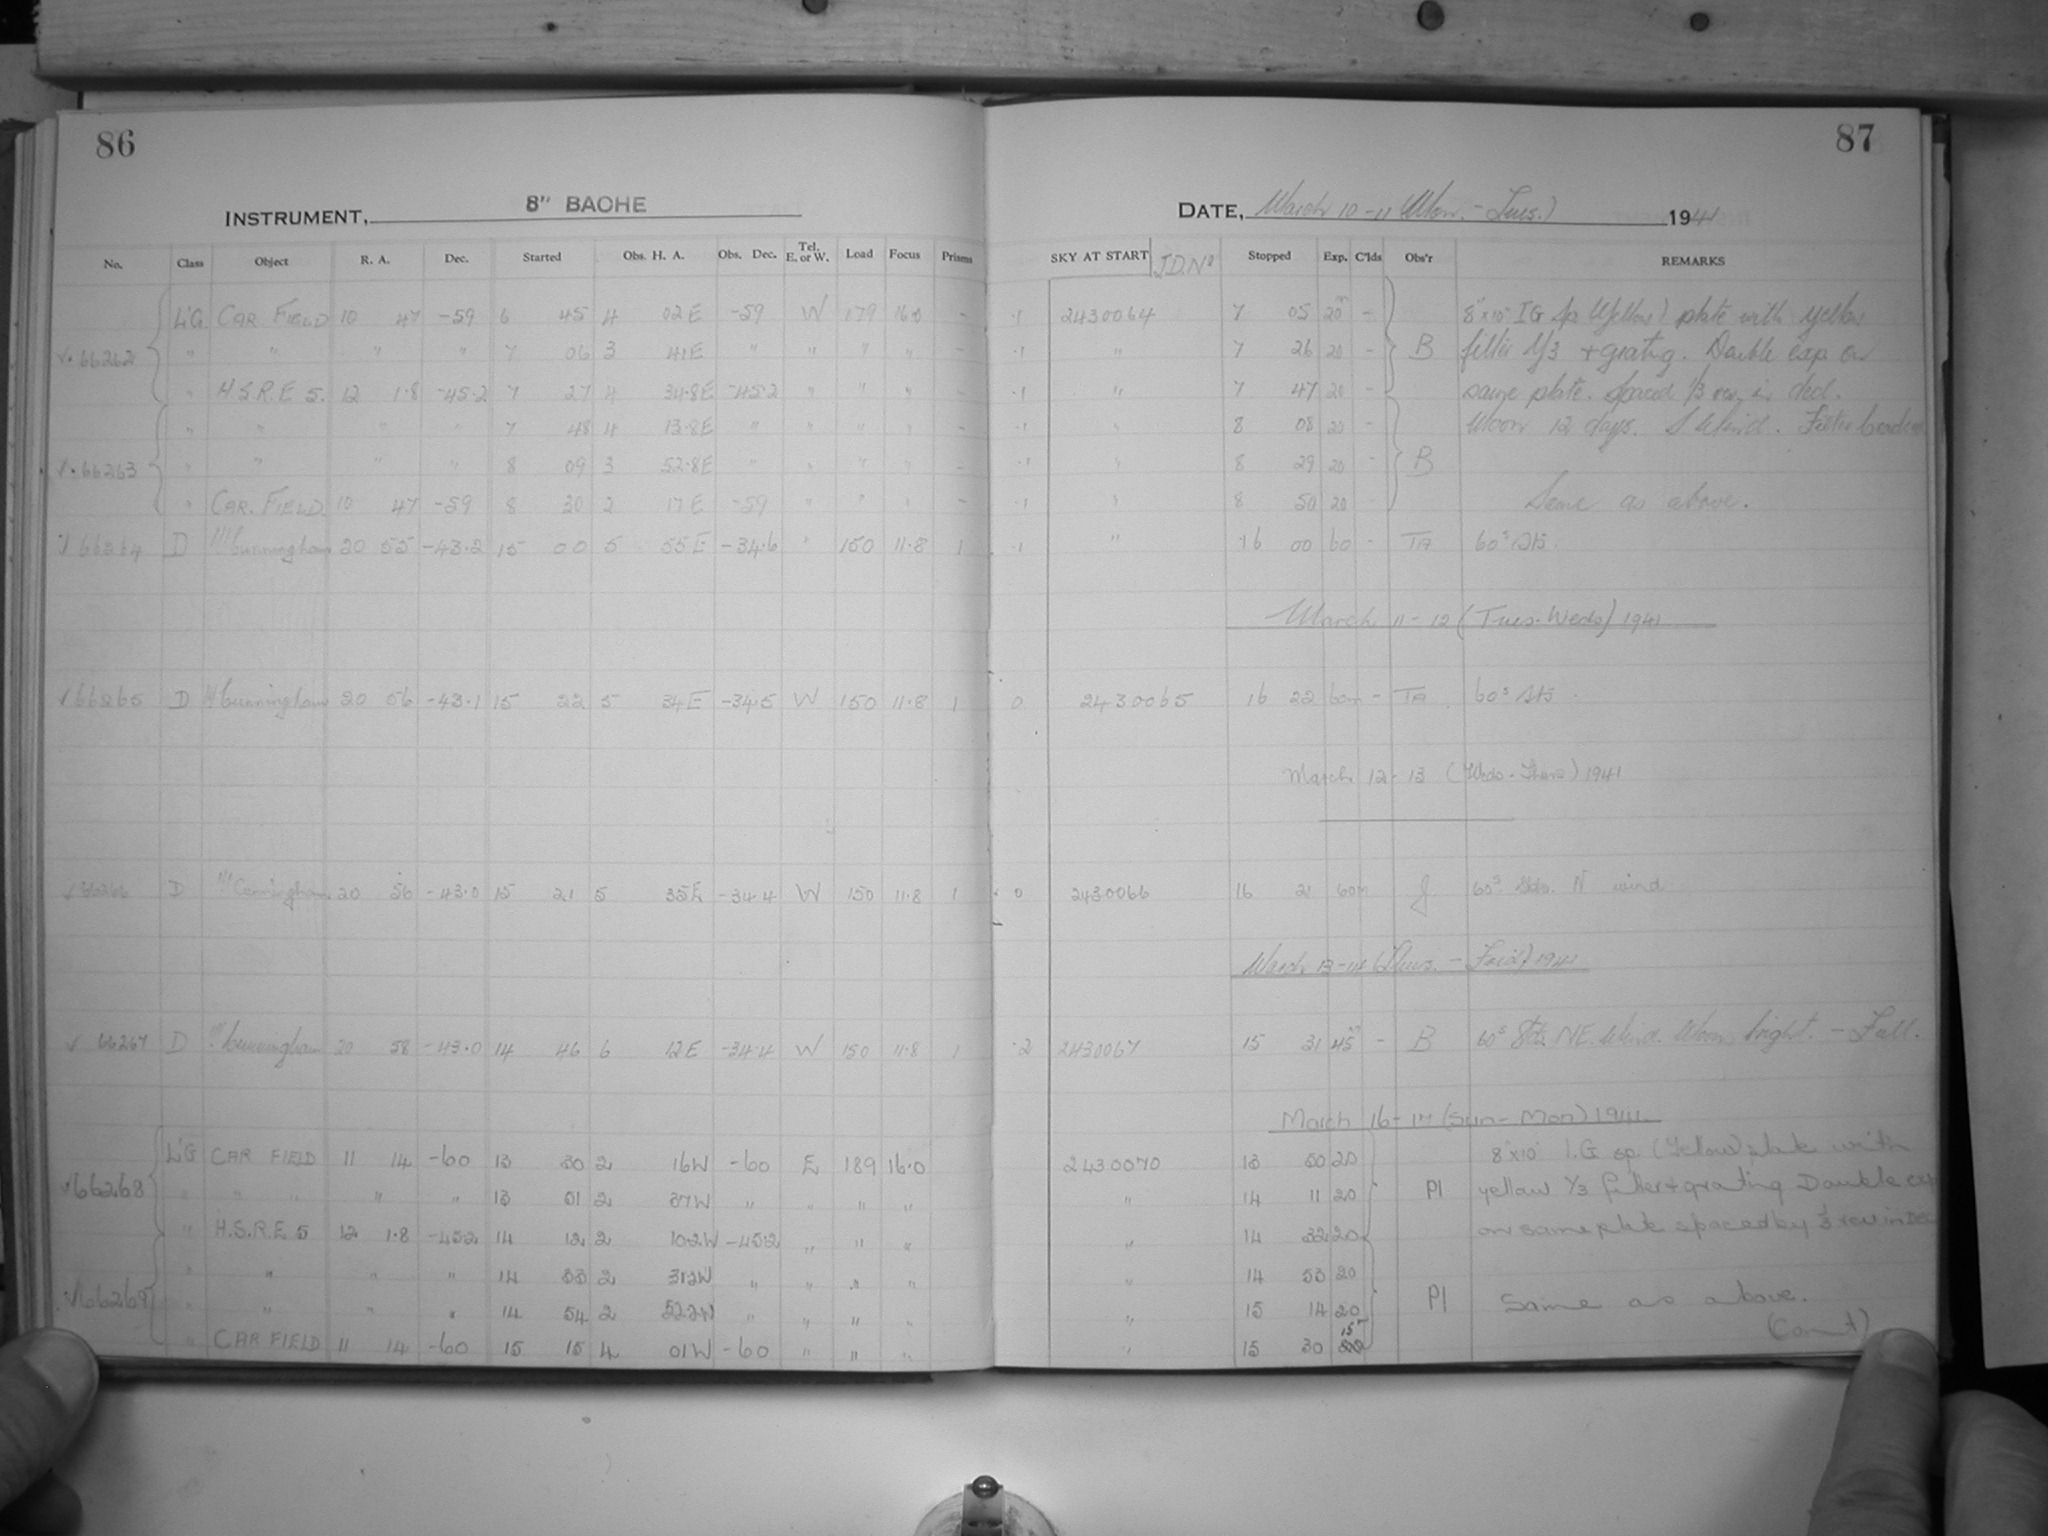 86
87
INSTRUMENT, 8" BACHE
DATE, March 10-11 (Mon. - Tues.) 1941
No. Class Object R. A. Dec. Started Obs. H. A. Obs. Dec. Tel. E. or W. Load Focus Prisms SKY AT START J.D. Nº Stopped Exp. C'lds Obs'r REMARKS
L'G CAR FIELD 10 47 -59 6 45 4 02E -59 W 179 16.0 - -1 2430064 7 05 20m - 8"x10" IG Sp (Yellow) plate with yellow
√. 66262 " " " " 7 06 3 41E " " " " - -1 " 7 26 20 - B filter 1/3 + grating. Double exp on
" H.S.R.E 5. 12 1.8 -45.2 7 27 4 34.8E -45.2 " " " - -1 " 7 47 20 - same plate. Spaced 1/3 rev. in decl.
" " " " 7 48 4 13.8E " " " " - -1 " 8 08 20 - Moon 12 days. S Wind.
√. 66263 " " " " 8 09 3 52.8E " " " " - -1 " 8 29 20 - B
" CAR. FIELD. 10 47 -59 8 30 2 17E -59 " " " - -1 " 8 50 20 - Same as above.
√ 66264 D Cunningham 20 55 -43.2 15 00 5 55E -34.6 " 150 11.8 1 -1 " 16 00 60 - TA 60s Sts.
March 11-12 (Tues-Weds) 1941
√66265 D Cunningham 20 56 -43.1 15 22 5 34E -34.5 W 150 11.8 1 0 2430065 16 22 60m - TA 60s Sts.
March 12-13 (Weds-Thurs) 1941
√66266 D Cunningham 20 56 -43.0 15 21 5 35E -34.4 W 150 11.8 1 0 2430066 16 21 60m J 60s Sds. N wind
March 13-14 (Thurs. - Frid) 1941
√ 66267 D Cunningham 20 58 -43.0 14 46 6 12E -34.4 W 150 11.8 1 -2 2430067 15 31 45m - B 60s Sts. NE. Wind. Moon bright. - Full.
March 16-17 (Sun-Mon) 1941.
L'G CAR FIELD 11 14 -60 13 30 2 16W -60 E 189 16.0 2430070 13 50 20 8"x10" I.G sp. (Yellow) plate with
√66268 " " " " 13 51 2 37W " " " " " 14 11 20 PI yellow 1/3 filter + grating Double exp
" H.S.R.E 5 12 1.8 -45.2 14 12 2 10.2W -45.2 " " " " 14 32 20 on same plate spaced by 1/3 rev in Dec
" " " " 14 33 2 31.2W " " " " " 14 53 20
√66269 " " " " 14 54 2 52.2W " " " " " 15 14 20 PI Same as above.
" CAR FIELD 11 14 -60 15 15 4 01W -60 " " " " 15 30 15 (Cont)